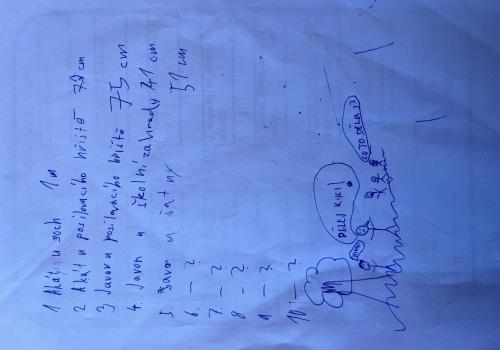 1 Akát u soch 1 m
2 Akát u posilovacího hřiště 73 cm
3 Javor u posilovacího hřiště 75 cm
4. Javor u školní zahrady 41 cm
5 Javor u šatny 51 cm
6. — ?
7. — ?
8 — ?
9 — ?
10 — ?
DĚLEJ KIKI!
CO TO DĚLAJÍ?